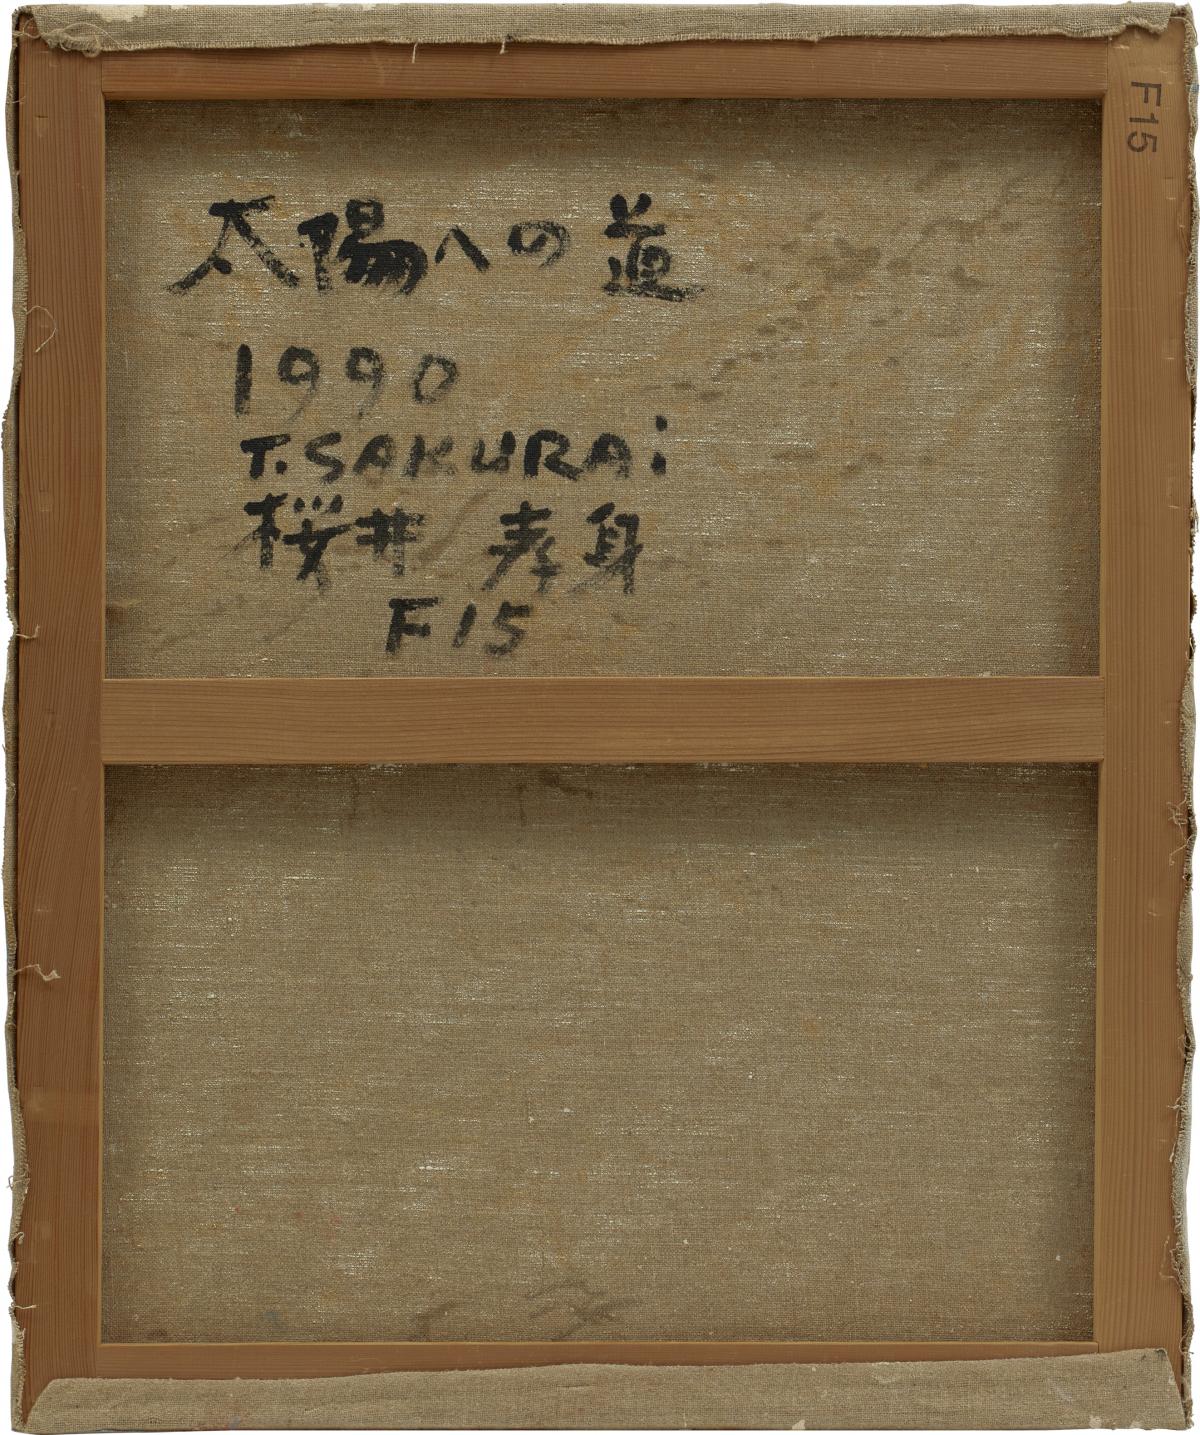 太陽への道
1990
T.SAKURAi
桜井 孝身
F15
F15